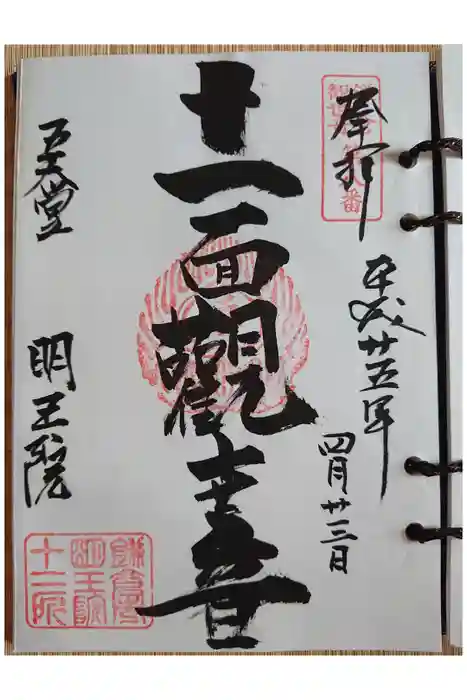 奉拝
平成廿五年
四月廿三日
十一面觀世音
五大堂
明王院
鎌倉
明王院
十二所